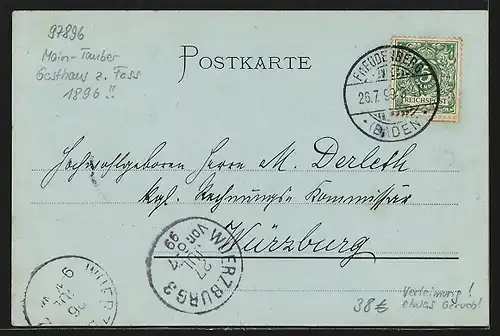 97896
Main-Tauber
Gasthaus z. Fass
1896!!
POSTKARTE
FREUDENBERG
26.7.99
(BADEN)
5
REICHSPOST
Hochwohlgeboren Herrn M. Derleth
kgl. Rechnungs-Kommissär
Würzburg
WUERZBURG 3
27 JUL
VOR 6-7
99
WUERZB
26
9
38€
Verleimung!
etwas Geruch!